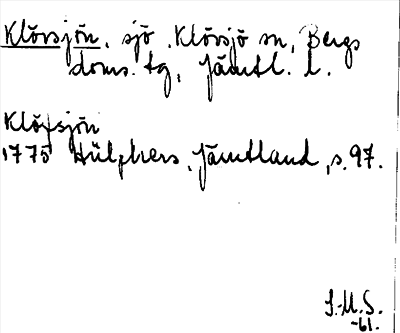 Klövsjön, sjö, Klövsjö sn, Bergs
doms. tg, Jämtl. l.
Klöfsjön
1775 Hülphers, Jämtland, s. 97.
S.-M.S.
-61.